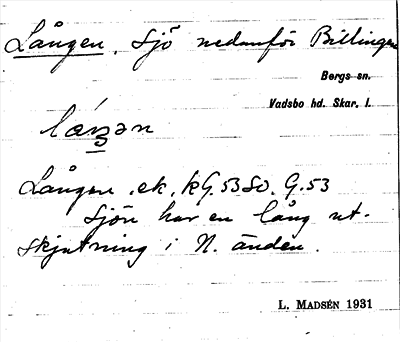 Lången, sjö nedanför Billingen
Bergs sn.
Vadsbo hd. Skar. l.
Lången. ek. kG. 53 So. G. 53
Sjön har en lång ut-
skjutning i N. änden.
L. MADSÉN 1931